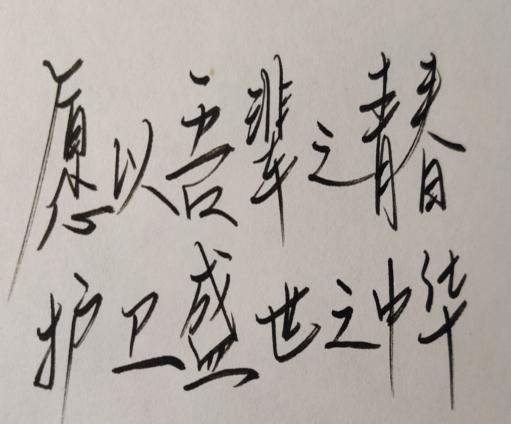 愿以吾辈之青春
护卫盛世之中华